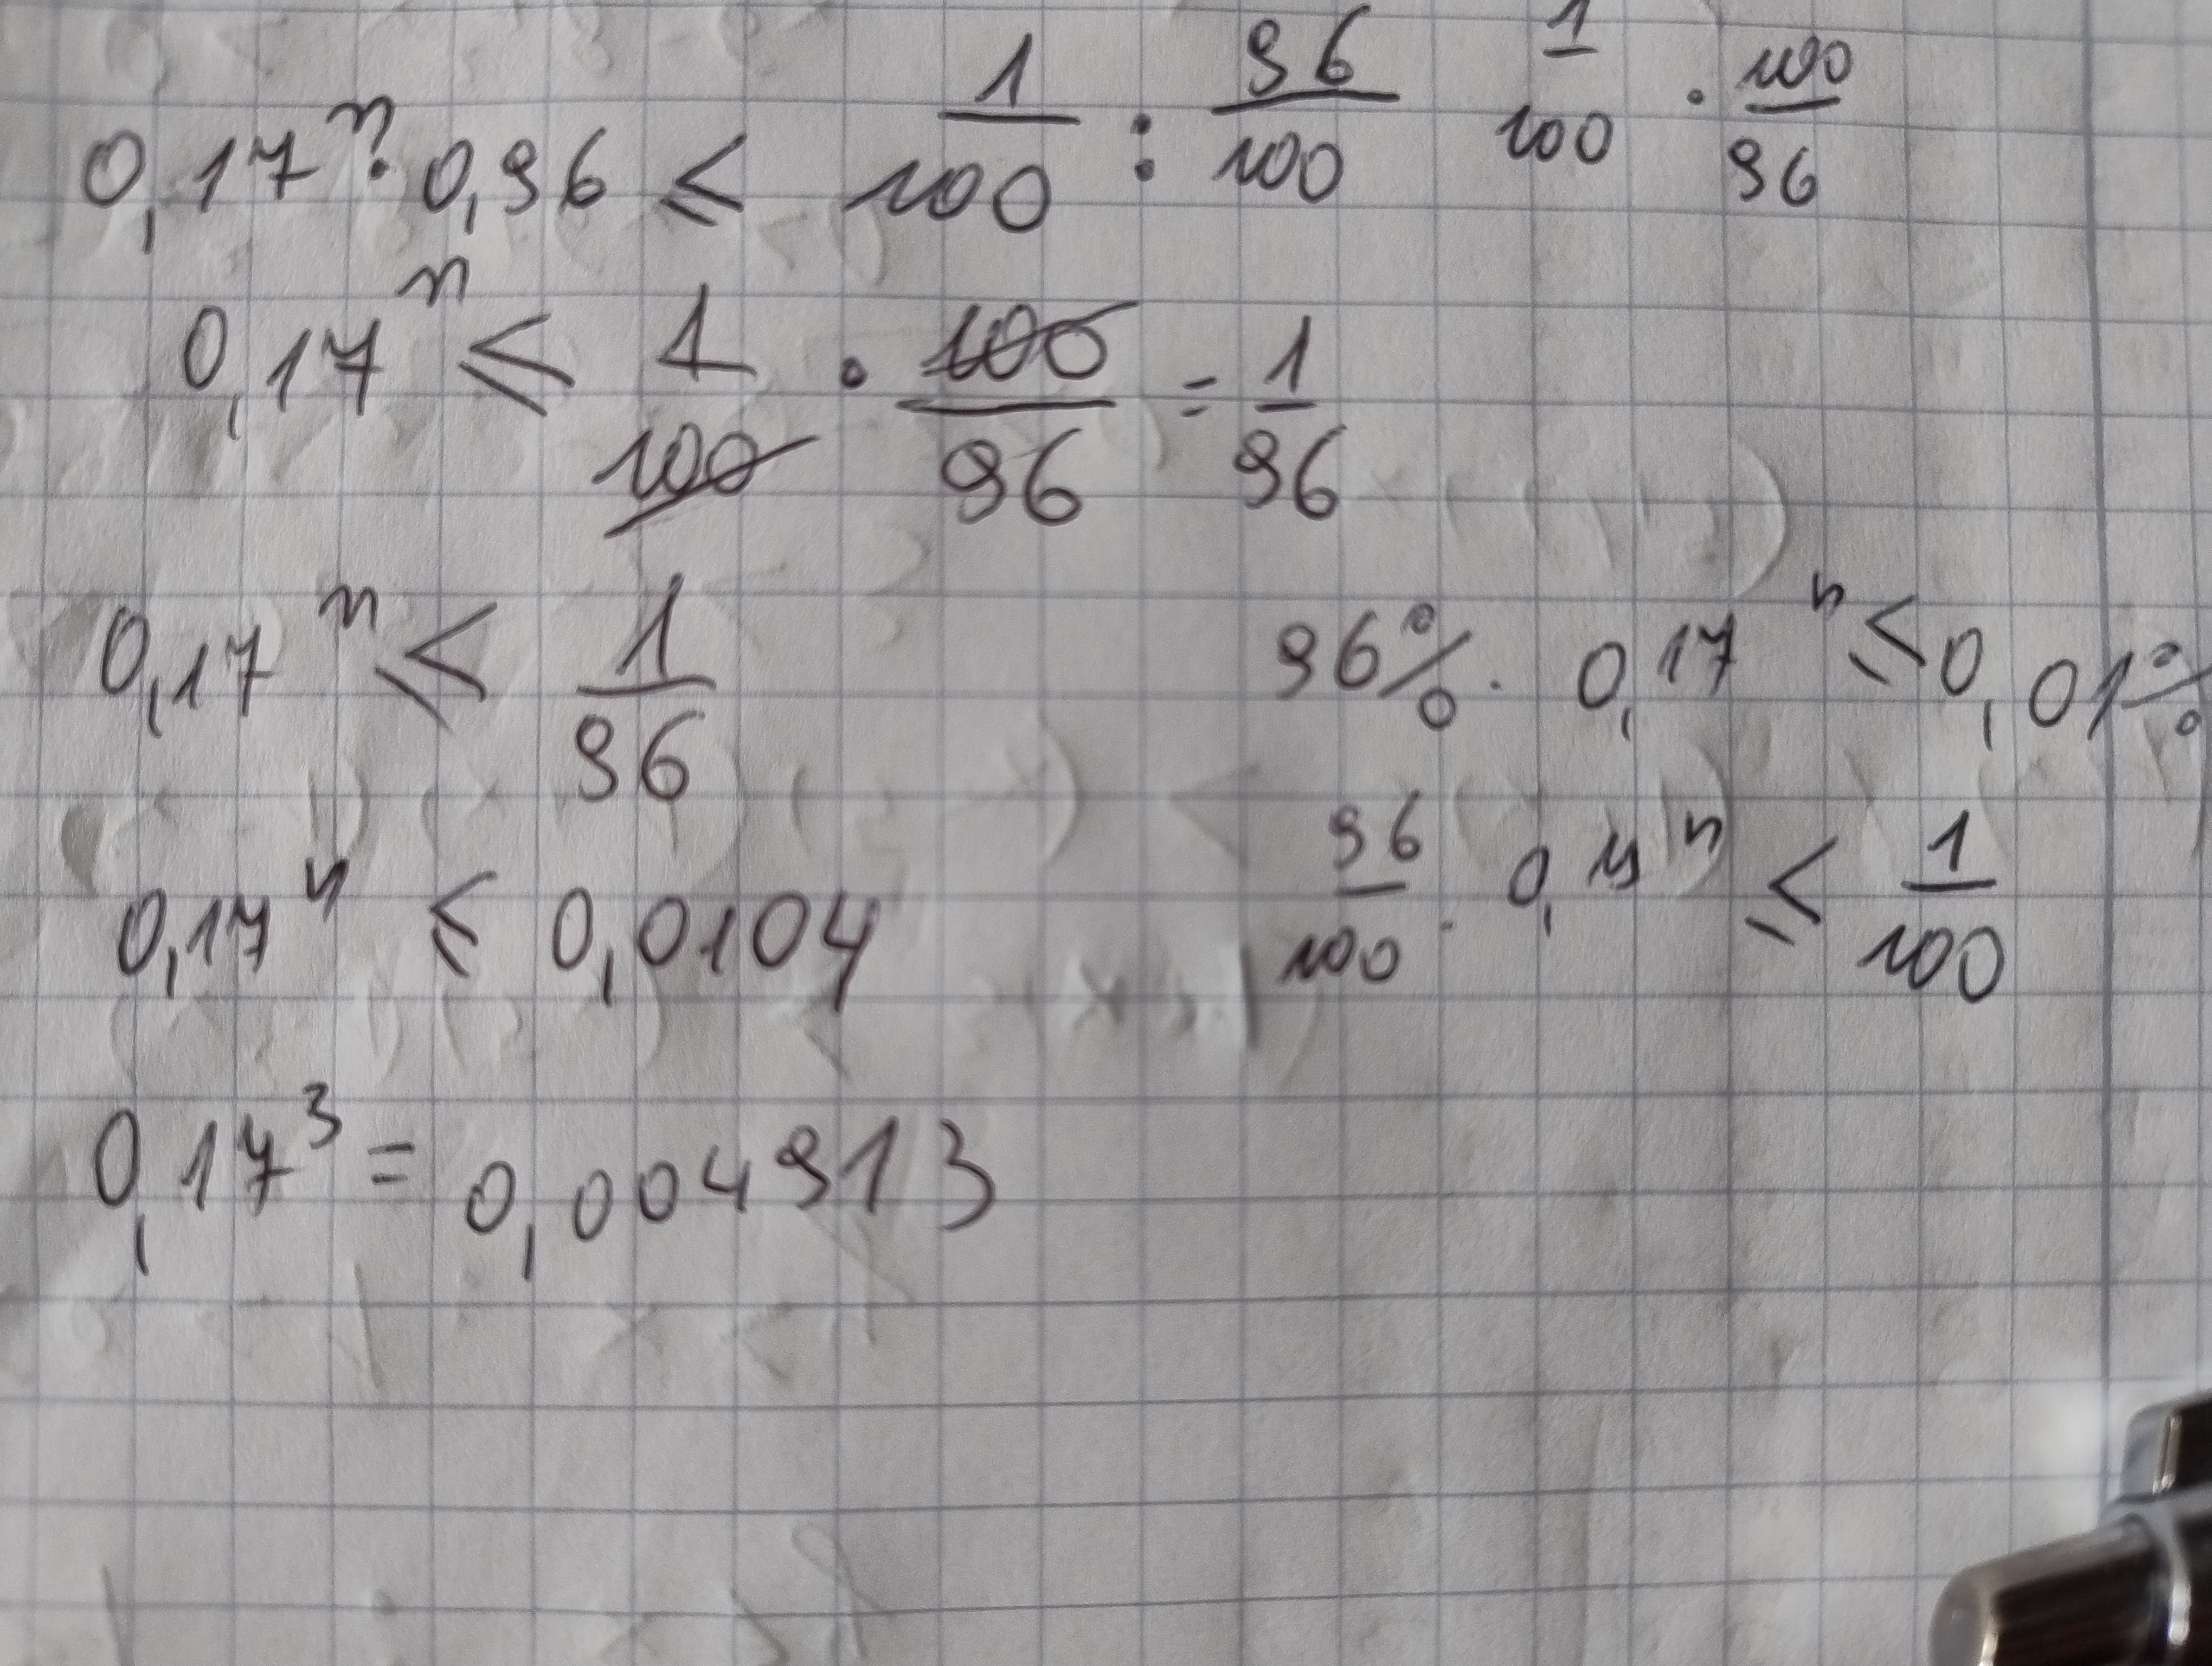 0,17ⁿ · 0,96 ≤ 1/100 : 96/100 1/100 · 100/96
0,17ⁿ ≤ 1/100 · 100/96 = 1/96
0,17ⁿ ≤ 1/96
96% · 0,17ⁿ ≤ 0,01%
0,17ⁿ ≤ 0,0104
96/100 · 0,17ⁿ ≤ 1/100
0,17³ = 0,004913